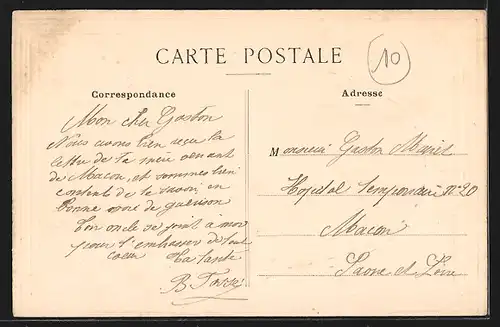 10
CARTE POSTALE
Correspondance
Adresse
Mon cher Gaston
Nous avons bien reçu la
lettre de ta mère venant
de Macon, et sommes bien
contents de te savoir en
bonne voie de guérison
Ton oncle se joint à moi
pour t'embrasser de tout
coeur Ta tante
B.
Monsieur Gaston
Hopital Temporaire n° 20
Macon
Saone et Loire